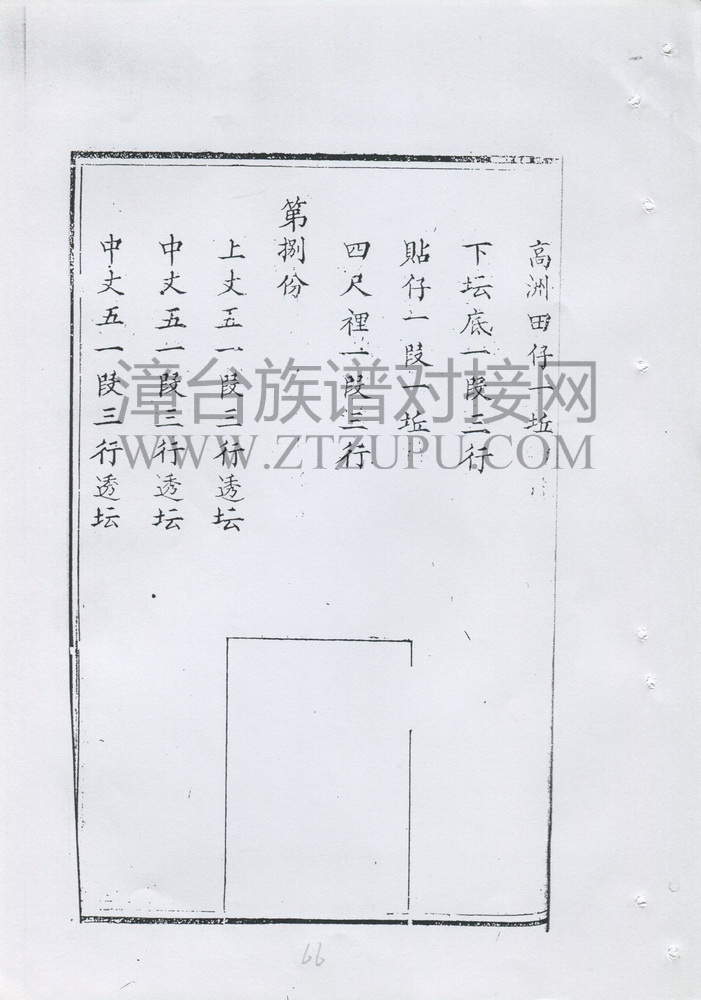 高洲田仔一坵
下坛底一段三行
貼仔一段一坵
四尺裡一段三行
第捌份
上丈五一段三行透坛
中丈五一段三行透坛
中丈五一段三行透坛
漳台族谱对接网
WWW.ZTZUPU.COM
66